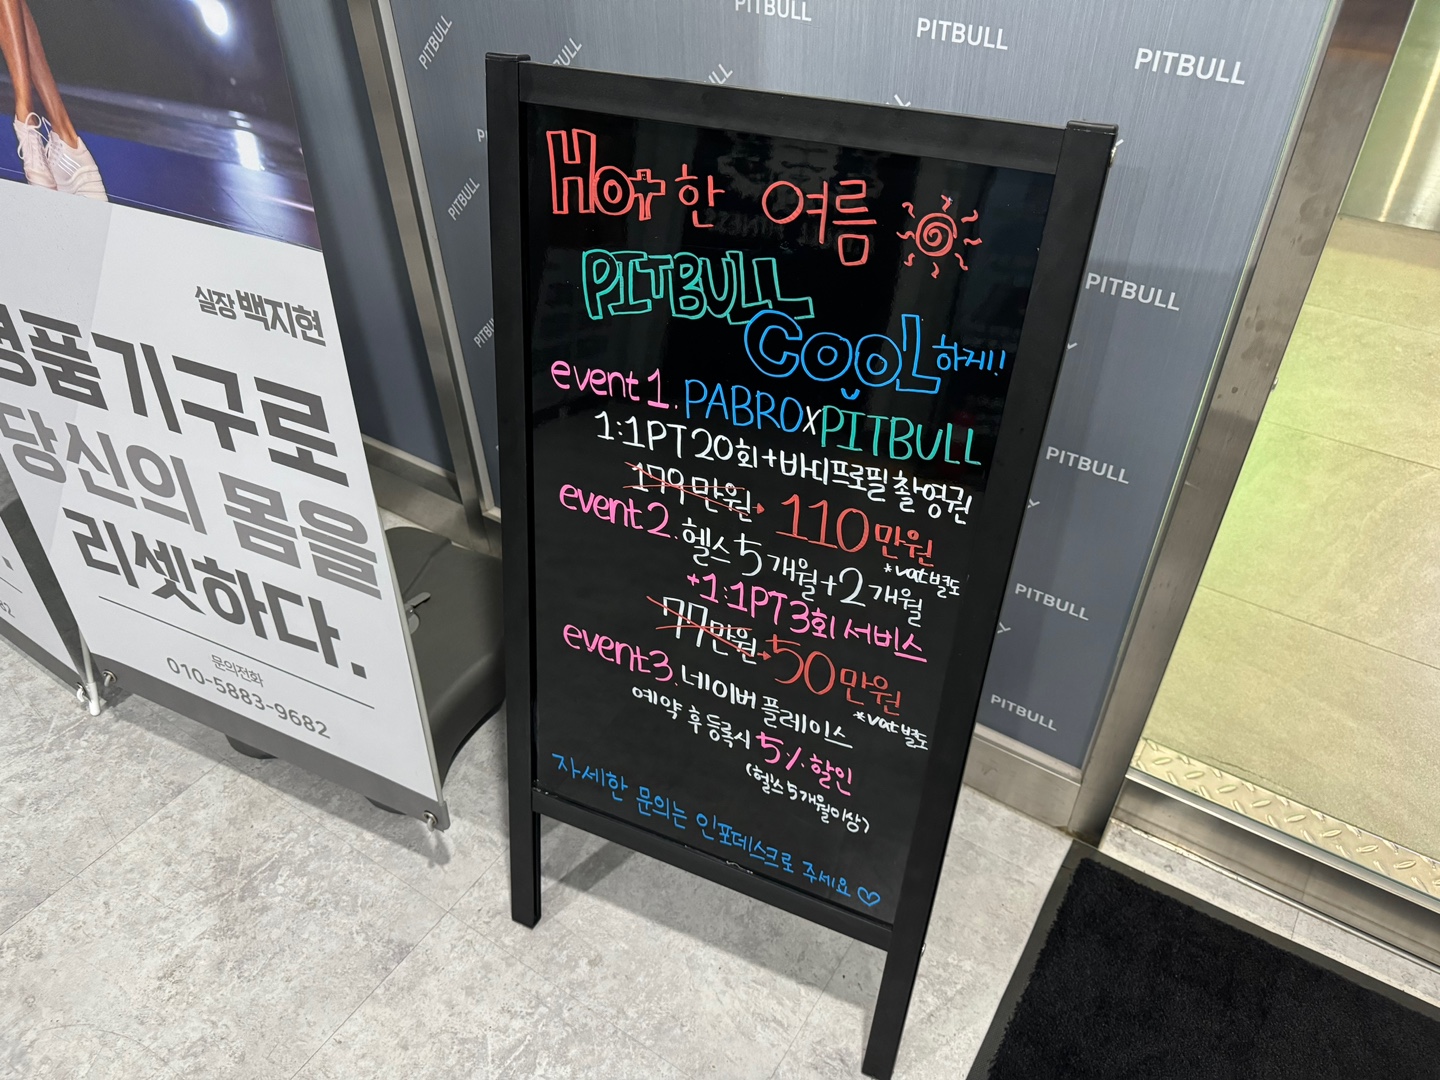 Hot한 여름
PITBULL
COOL하게!!
event1. PABROXPITBULL
1:1PT 20회+바디프로필 촬영권
179만원→110만원
*vat별도
event2. 헬스5개월+2개월
+1:1PT3회 서비스
77만원→50만원
*vat별도
event3. 네이버 플레이스
예약 후 등록시 5% 할인
(헬스5개월이상)
자세한 문의는 인포데스크로 주세요♡
실장 백지현
명품기구로
당신의 몸을
리셋하다.
문의전화
010-5883-9682
PITBULL
PITBULL
PITBULL
PITBULL
PITBULL
PITBULL
PITBULL
PITBULL
PITBULL